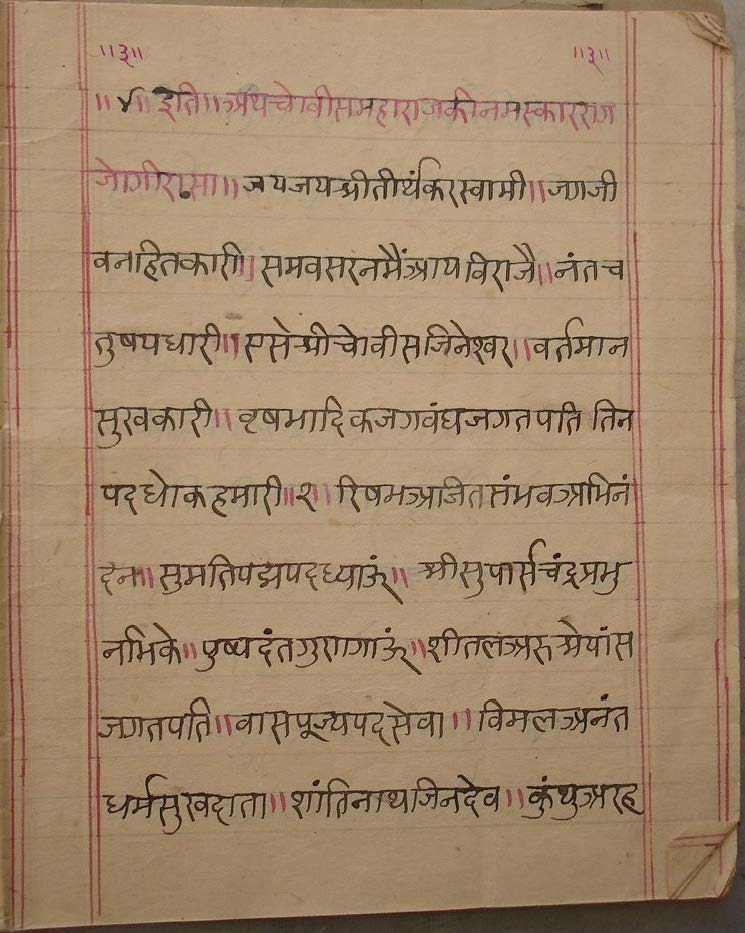 ॥३॥ ॥३॥
॥४॥ इति॥ अथचोवीसमहाराजकीनमस्कारराग
जोगीरासा॥ जयजयश्रीतीर्थंकरस्वामी॥ जगजी
वनहितकारी॥ समवसरनमैंआयविराजै॥ नंतच
तुषयधारी॥ एसेश्रीचोवीसजिनेश्वर॥ वर्तमान
सुखकारी॥ वृषभादिकजगवंद्यजगतपति तिन
पदधोकहमारी॥१॥ रिषभअजितसंभवअभिनं
दन॥ सुमतिपद्मपदध्याऊं॥ श्रीसुपार्सचंद्रप्रभु
नभिके॥ पुष्पदंतगुरागाऊं॥ शीतलअरुश्रेयांस
जगतपति॥ वासपूज्यपदसेवा॥ विमलअनंत
धर्मसुखदाता॥ शांतिनाथजिनदेव॥ कुंथुअरह